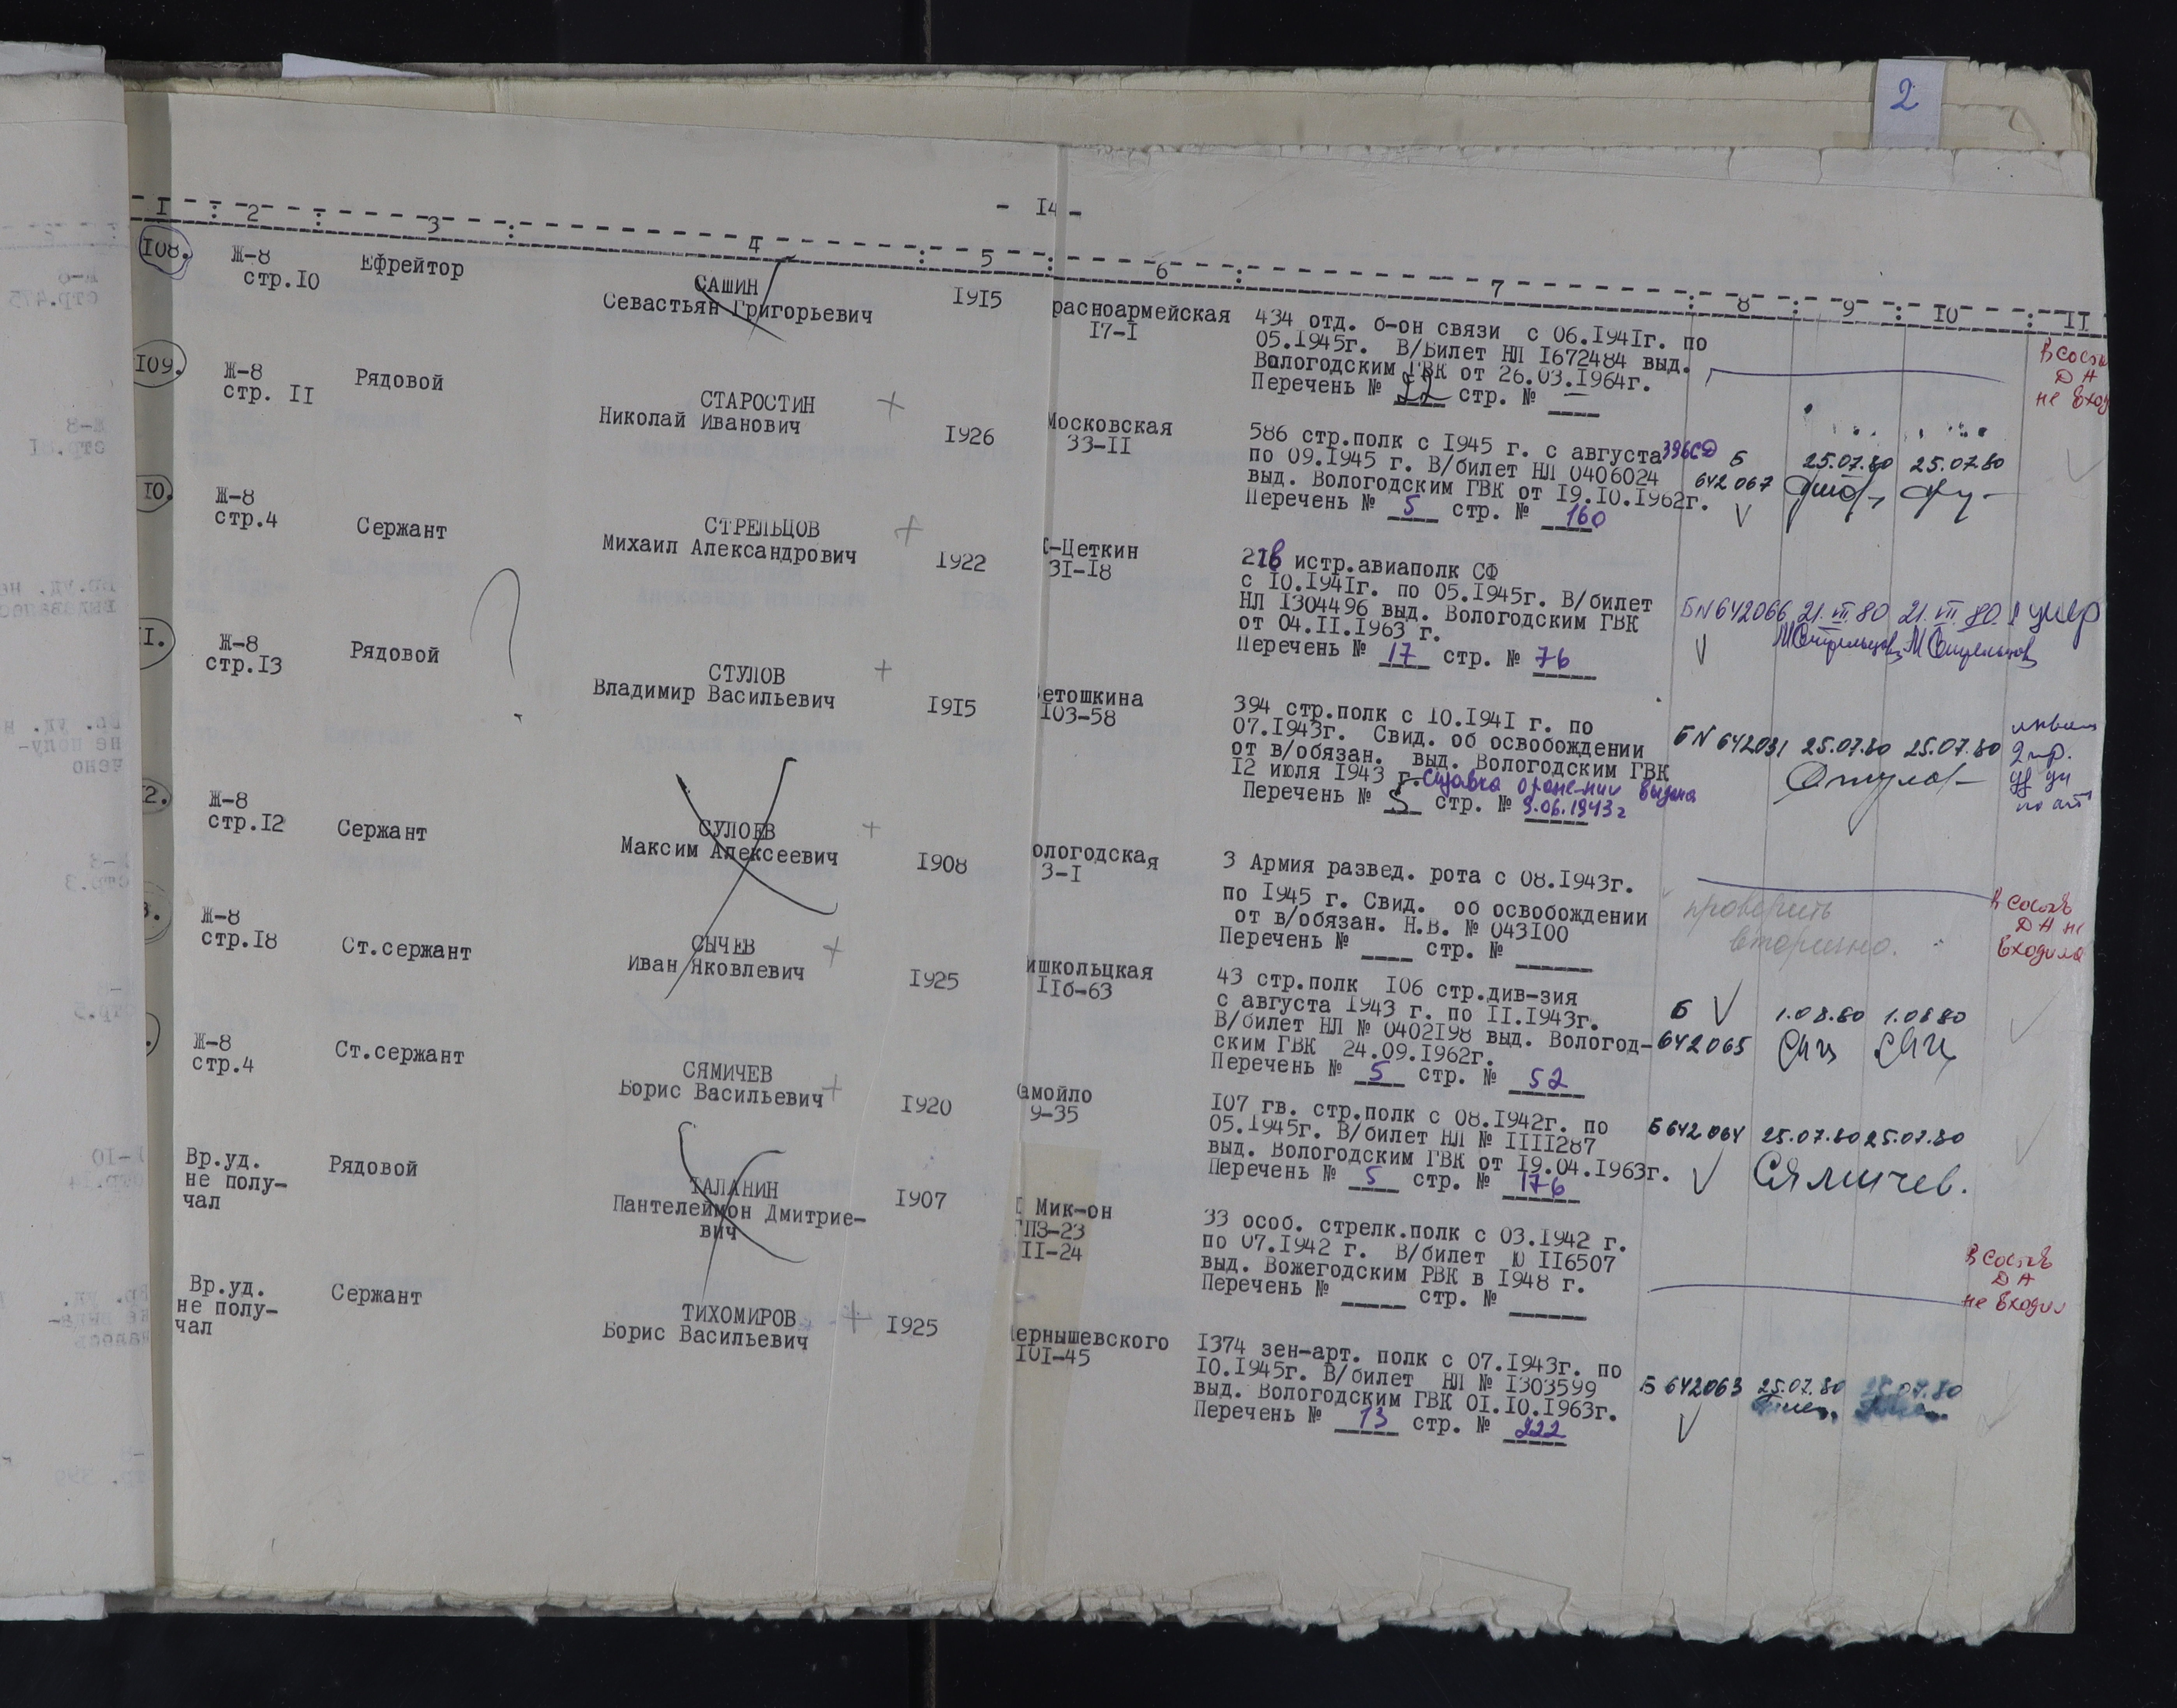 2
- I4 -
I : 2 : 3 : 4 : 5 : 6 : 7 : 8 : 9 : IO : II
I08.
Ж-8
стр.IO
Ефрейтор
САШИН
Севастьян Григорьевич
I9I5
расноармейская
I7-I
434 отд. б-он связи с 06.I94Iг. по
05.I945г. В/Билет НЛ I672484 выд.
Вологодским ГВК от 26.03.I964г.
Перечень № 22 стр. №
В соста
ДА
не вход
I09.
Ж-8
стр. II
Рядовой
СТАРОСТИН
Николай Иванович
I926
Московская
33-II
586 стр.полк с I945 г. с августа 396СД
по 09.I945 г. В/билет НЛ 0406024
выд. Вологодским ГВК от I9.IO.I962г.
Перечень № 5 стр. № 160
Б
642 067
25.07.80
25.07.80
IO.
Ж-8
стр.4
Сержант
СТРЕЛЬЦОВ
Михаил Александрович
I922
-Цеткин
3I-I8
истр.авиаполк СФ
с IO.I94Iг. по 05.I945г. В/билет
НЛ I304496 выд. Вологодским ГВК
от 04.II.I963 г.
Перечень № 17 стр. № 76
БN 642066
21.VII.80
21.VII.80.
умер
МСтрельцов
МСтрельцов
I.
Ж-8
стр.I3
Рядовой
СТУЛОВ
Владимир Васильевич
I9I5
етошкина
I03-58
394 стр.полк с IO.I94I г. по
07.I943г. Свид. об освобождении
от в/обязан. выд. Вологодским ГВК
I2 июля I943 г. Справка о ранении выдана
Перечень № 5 стр. № 9.06.1943г
БN 642031
25.07.80
25.07.80
2 гр.
2.
Ж-8
стр.I2
Сержант
СУЛОЕВ
Максим Алексеевич
I908
ологодская
3-I
3 Армия развед. рота с 08.I943г.
по I945 г. Свид. об освобождении
от в/обязан. Н.В. № 043I00
Перечень № стр. №
проверить
вторично.
В состав
ДА не
входила
3.
Ж-8
стр.I8
Ст.сержант
СЫЧЕВ
Иван Яковлевич
I925
ишкольцкая
II6-63
43 стр.полк I06 стр.див-зия
с августа I943 г. по II.I943г.
В/билет НЛ № 0402I98 выд. Вологод-
ским ГВК 24.09.I962г.
Перечень № 5 стр. № 52
Б
642065
1.08.80
1.08.80
Ж-8
стр.4
Ст.сержант
СЯМИЧЕВ
Борис Васильевич
I920
амойло
9-35
I07 гв. стр.полк с 08.I942г. по
05.I945г. В/билет НЛ № IIII287
выд. Вологодским ГВК от I9.04.I963г.
Перечень № 5 стр. № 176
Б 642064
25.07.80
25.07.80
Сямичев.
Вр.уд.
не полу-
чал
Рядовой
ТАЛАНИН
Пантелеймон Дмитрие-
вич
I907
Мик-он
ГПЗ-23
II-24
33 особ. стрелк.полк с 03.I942 г.
по 07.I942 г. В/билет Ю II6507
выд. Вожегодским РВК в I948 г.
Перечень № стр. №
В состав
ДА
не входил
Вр.уд.
не полу-
чал
Сержант
ТИХОМИРОВ
Борис Васильевич
I925
ернышевского
I0I-45
I374 зен-арт. полк с 07.I943г. по
IO.I945г. В/билет НЛ № I303599
выд. Вологодским ГВК 0I.IO.I963г.
Перечень № 13 стр. № 222
Б 642063
25.07.80
25.07.80